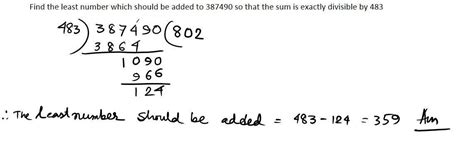 Find the least number which should be added to 387490 so that the sum is exactly divisible by 483
483) 387490 (802
3864
1090
966
124
∴ The least number should be added = 483 - 124 = 359 Ans